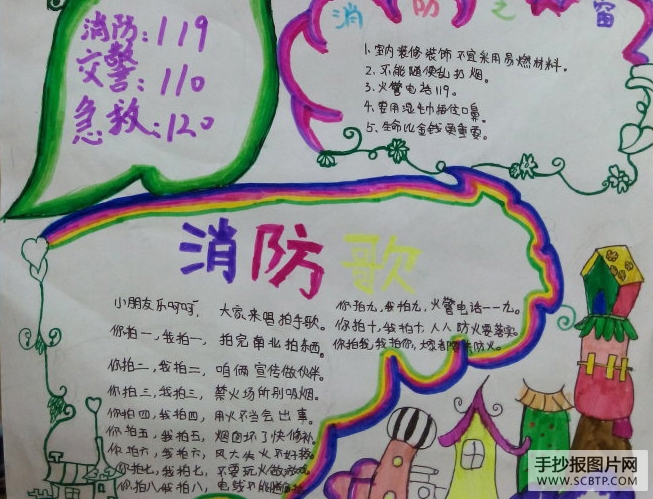 消防：119
交警：110
急救：120
消防之窗
1.室内装修装饰不宜采用易燃材料。
2.不能随便乱扔烟。
3.火警电话119。
4.要用湿毛巾捂住口鼻。
5.生命比金钱更重要。
消防歌
小朋友乐呵呵，大家来唱拍手歌。
你拍一，我拍一，拍完 拍东西。
你拍二，我拍二，咱俩宣传做伙伴。
你拍三，我拍三，禁火场所别吸烟。
你拍四，我拍四，用火不当会出事。
你拍五，我拍五，烟囱坏了快修补。
你拍六，我拍六，风大失火不好救。
你拍七，我拍七，不要玩火做游戏。
你拍八，我拍八，电线不能
你拍九，我拍九，火警电话一一九。
你拍十，我拍十，人人防火要落实。
你拍我，我拍你， 防火。
手抄报图片网
WWW.SCBTP.COM